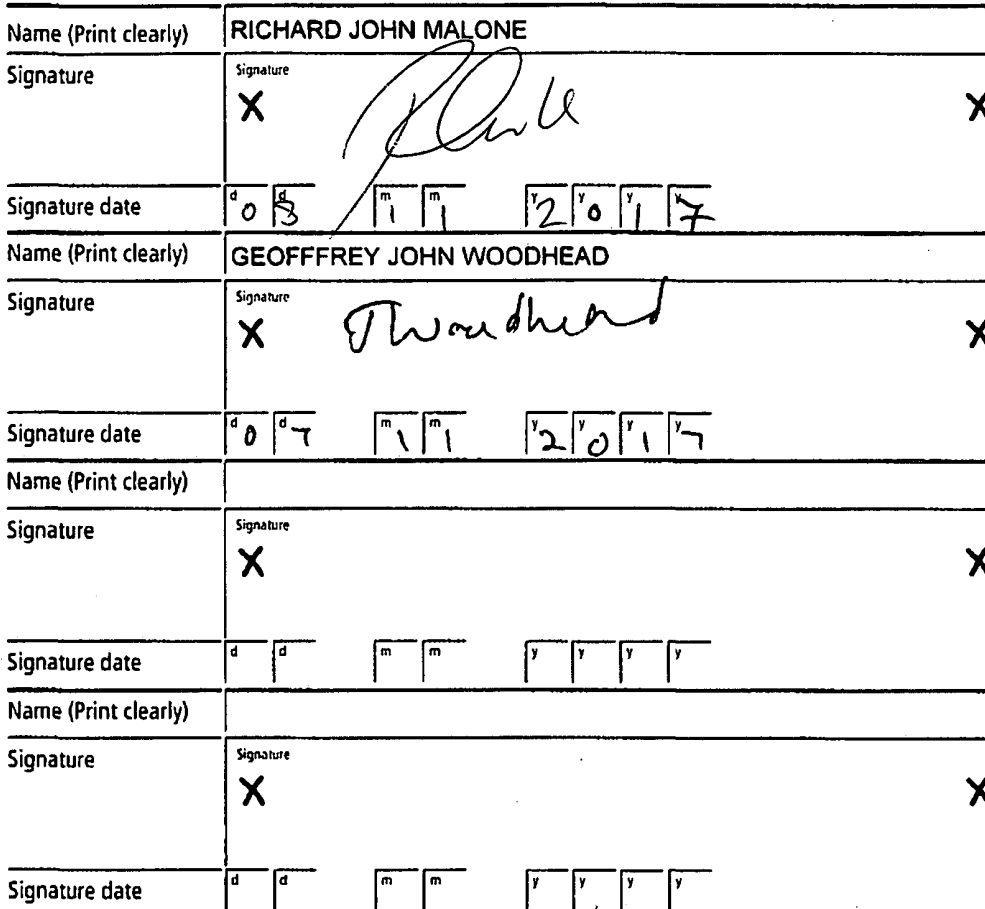 Name (Print clearly) RICHARD JOHN MALONE
Signature Signature
X X
Signature date d 0 d 8 m 1 m 1 y 2 y 0 y 1 y 7
Name (Print clearly) GEOFFFREY JOHN WOODHEAD
Signature Signature
X JWoodhead X
Signature date d 0 d 7 m 1 m 1 y 2 y 0 y 1 y 7
Name (Print clearly)
Signature Signature
X X
Signature date d d m m y y y y
Name (Print clearly)
Signature Signature
X X
Signature date d d m m y y y y